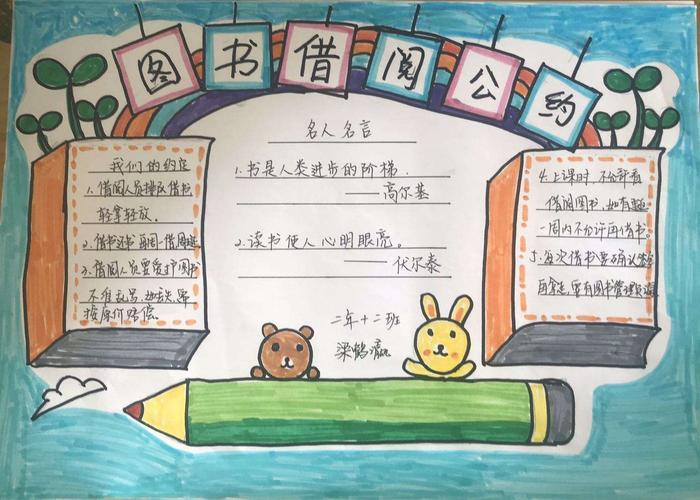 图书借阅公约
我们的约定
1.借阅人员排队借书
轻拿轻放。
2.借书还书
3.借阅人员要爱护图书
不准乱写,如丢失需
按原价赔偿。
名人名言
1.书是人类进步的阶梯.
——高尔基
2.读书使人心明眼亮。
——伏尔泰
二年十二班
梁鹤瀛
4.上课时,不允许看
借阅图书,如有违
一周内不允许再借书。
5.每次借书要确认
再拿走,要有图书管理员